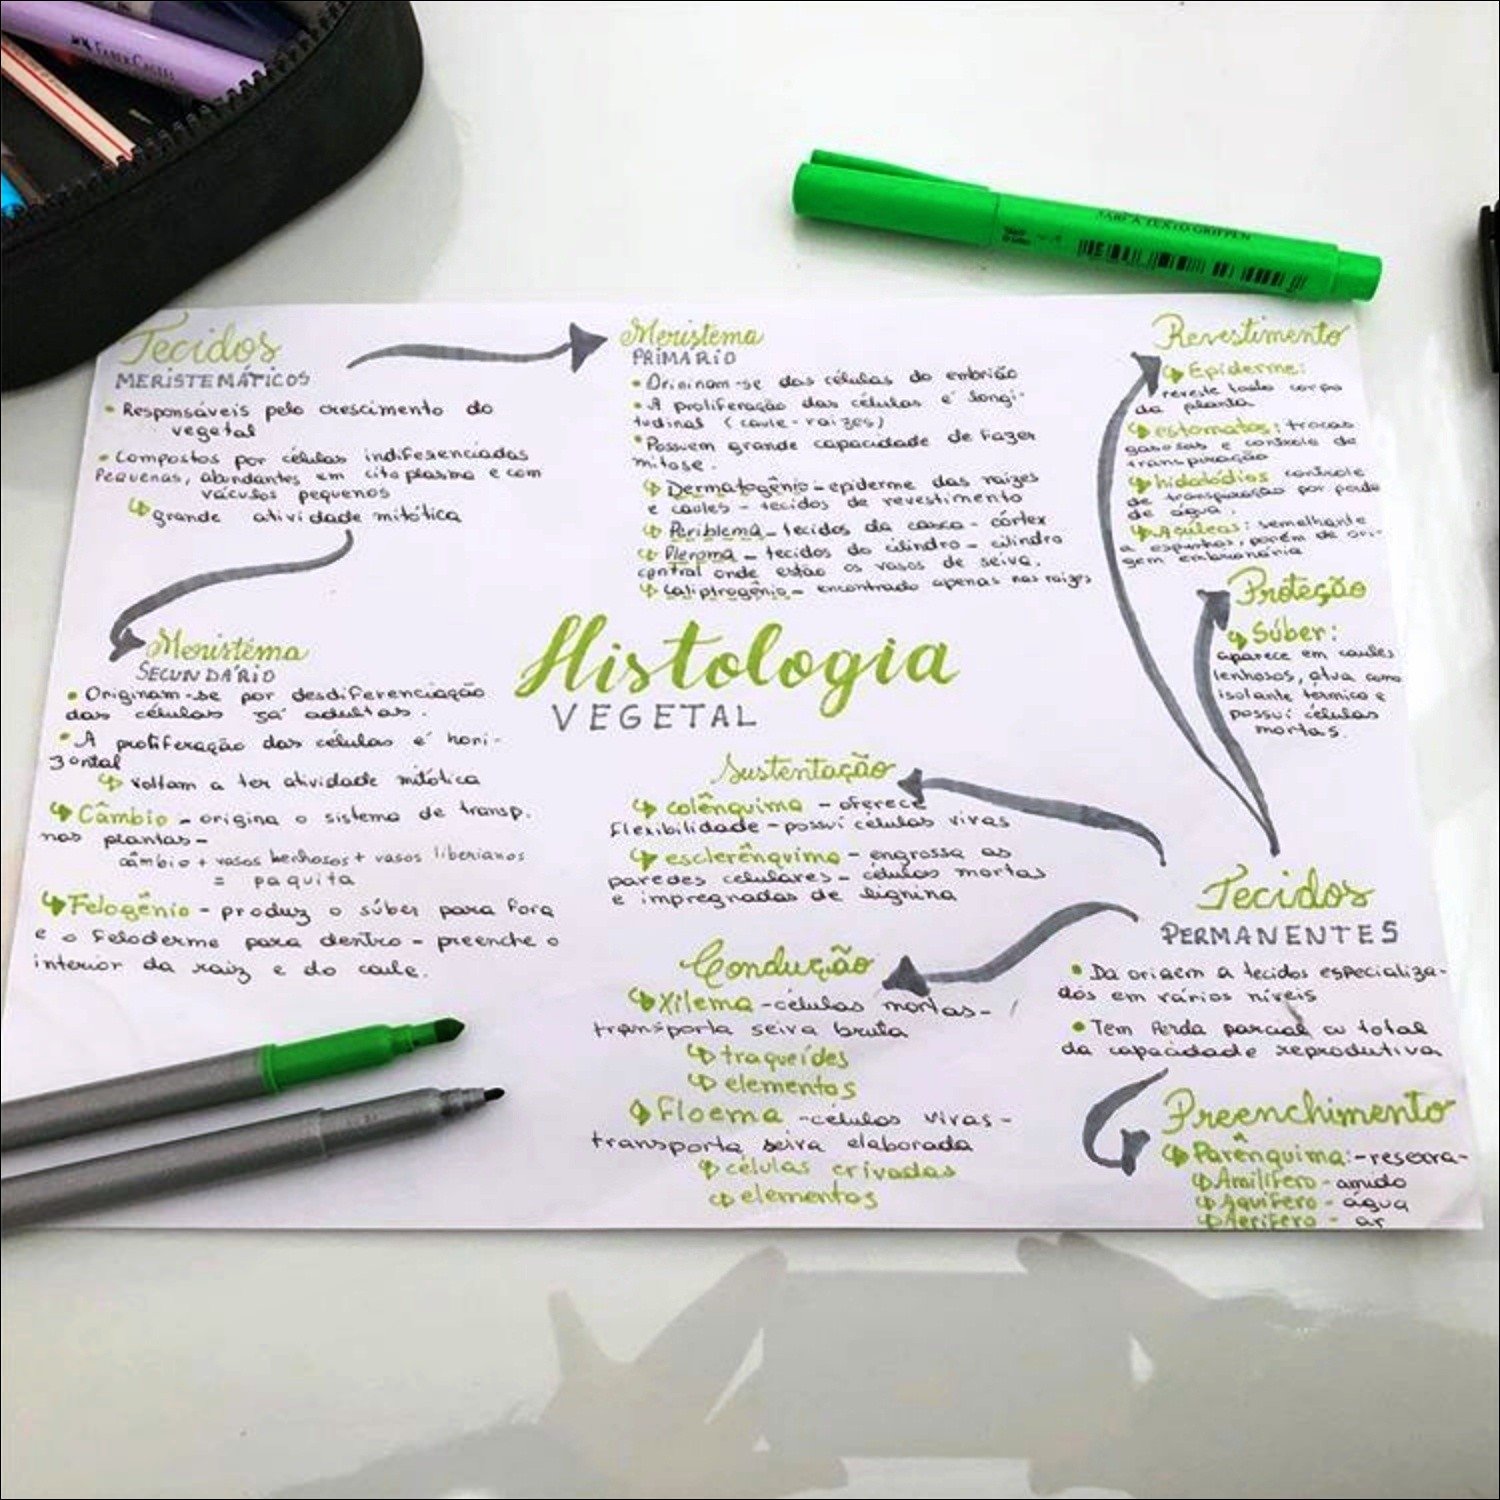 FABER-CASTELL
MARCA TEXTO GRIFPEN
Tecidos
MERISTEMÁTICOS
• Responsáveis pelo crescimento do
vegetal
• Compostos por células indiferenciadas
Pequenas, abundantes em citoplasma e com
vácuos pequenos
grande atividade mitótica
Meristema
PRIMÁRIO
• Originam-se das células do embrião
• A proliferação das células é longi-
tudinal (caule-raízes)
• Possuem grande capacidade de fazer
mitose.
Dermatogênio - epiderme das raízes
e caules - tecidos de revestimento
Periblema - tecidos da casca - córtex
Pleroma - tecidos do cilindro - cilindro
central onde estão os vasos de seiva.
Caliptrogênio - encontrado apenas nas raízes
Revestimento
Epiderme:
reveste todo corpo
da planta
estomatos: trocas
gasosas e controle de
transpiração
hidatódios controle
de transpiração por perda
de água.
Acúleos: semelhante
a espinhos, porém de ori-
gem embrionária
Proteção
Súber:
aparece em caules
lenhosos, atua como
isolante térmico e
possui células
mortas.
Meristema
SECUNDÁRIO
• Originam-se por desdiferenciação
das células já adultas.
• A proliferação das células é hori-
zontal
voltam a ter atividade mitótica
Câmbio - origina o sistema de transp.
nas plantas -
câmbio + vasos lenhosos + vasos liberianos
= paquita
Felogênio - produz o súber para fora
e o feloderme para dentro - preenche o
interior da raiz e do caule.
Histologia
VEGETAL
Sustentação
colênquima - oferece
flexibilidade - possui células vivas
esclerênquima - engrossa as
paredes celulares - células mortas
e impregnadas de lignina
Condução
Xilema - células mortas -
transporta seiva bruta
traqueídes
elementos
Floema - células vivas -
transporta seiva elaborada
células crivadas
elementos
Tecidos
PERMANENTES
• Da origem a tecidos especializa-
dos em vários níveis
• Tem perda parcial ou total
da capacidade reprodutiva
Preenchimento
Parênquima: - reserva -
Amilífero - amido
Aquífero - água
Aerífero - ar